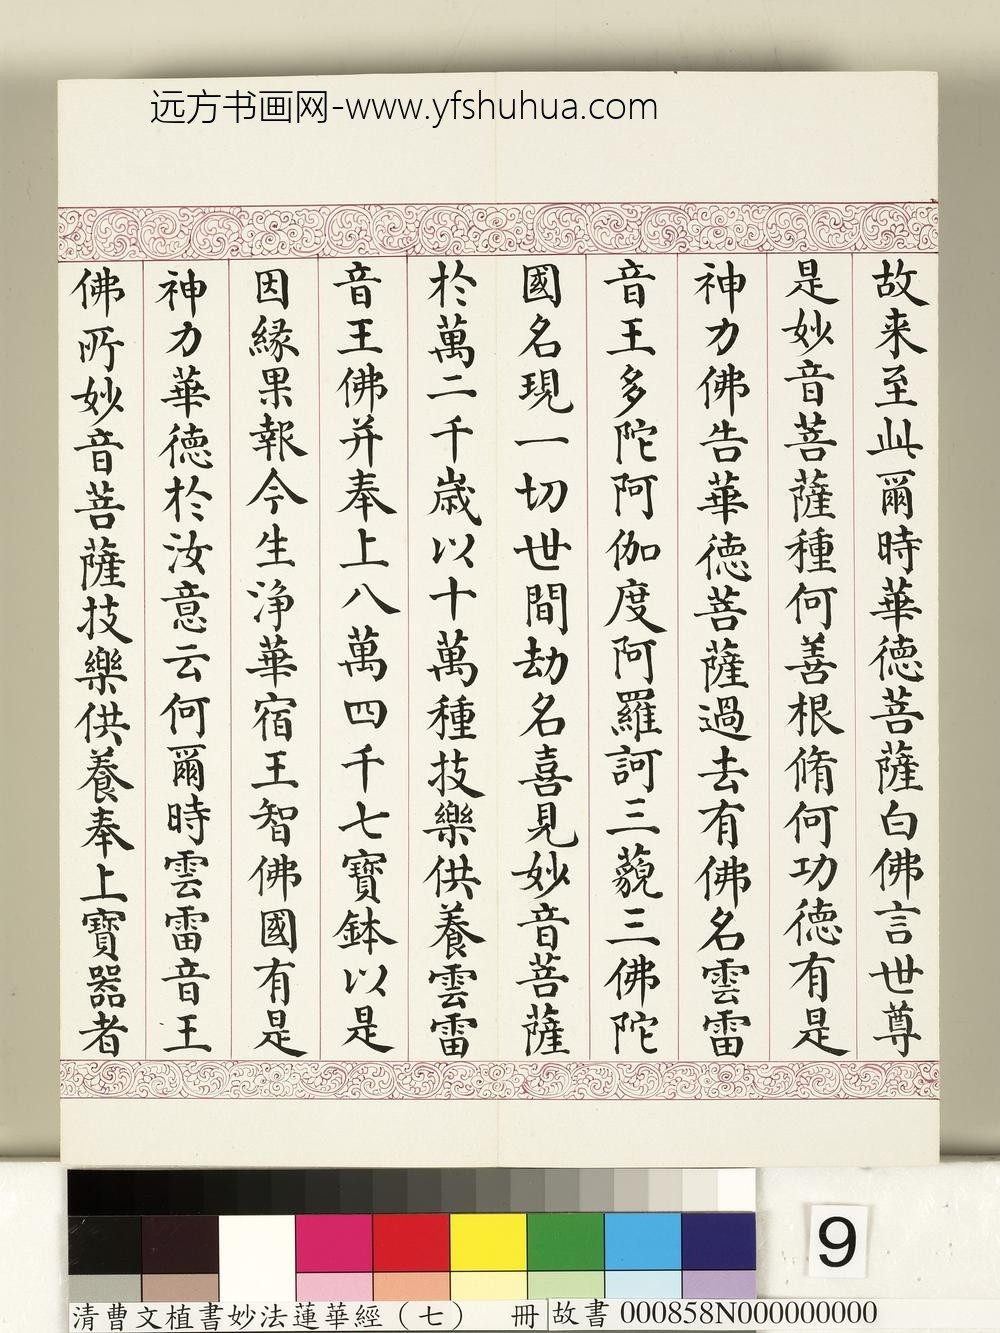 远方书画网-www.yfshuhua.com
故来至此爾時華德菩薩白佛言世尊
是妙音菩薩種何善根脩何功德有是
神力佛告華德菩薩過去有佛名雲雷
音王多陀阿伽度阿羅訶三藐三佛陀
國名現一切世間劫名喜見妙音菩薩
於萬二千歲以十萬種技樂供養雲雷
音王佛并奉上八萬四千七寶鉢以是
因緣果報今生淨華宿王智佛國有是
神力華德於汝意云何爾時雲雷音王
佛所妙音菩薩技樂供養奉上寶器者
9
清曹文植書妙法蓮華經（七） 冊
故書 000858N000000000